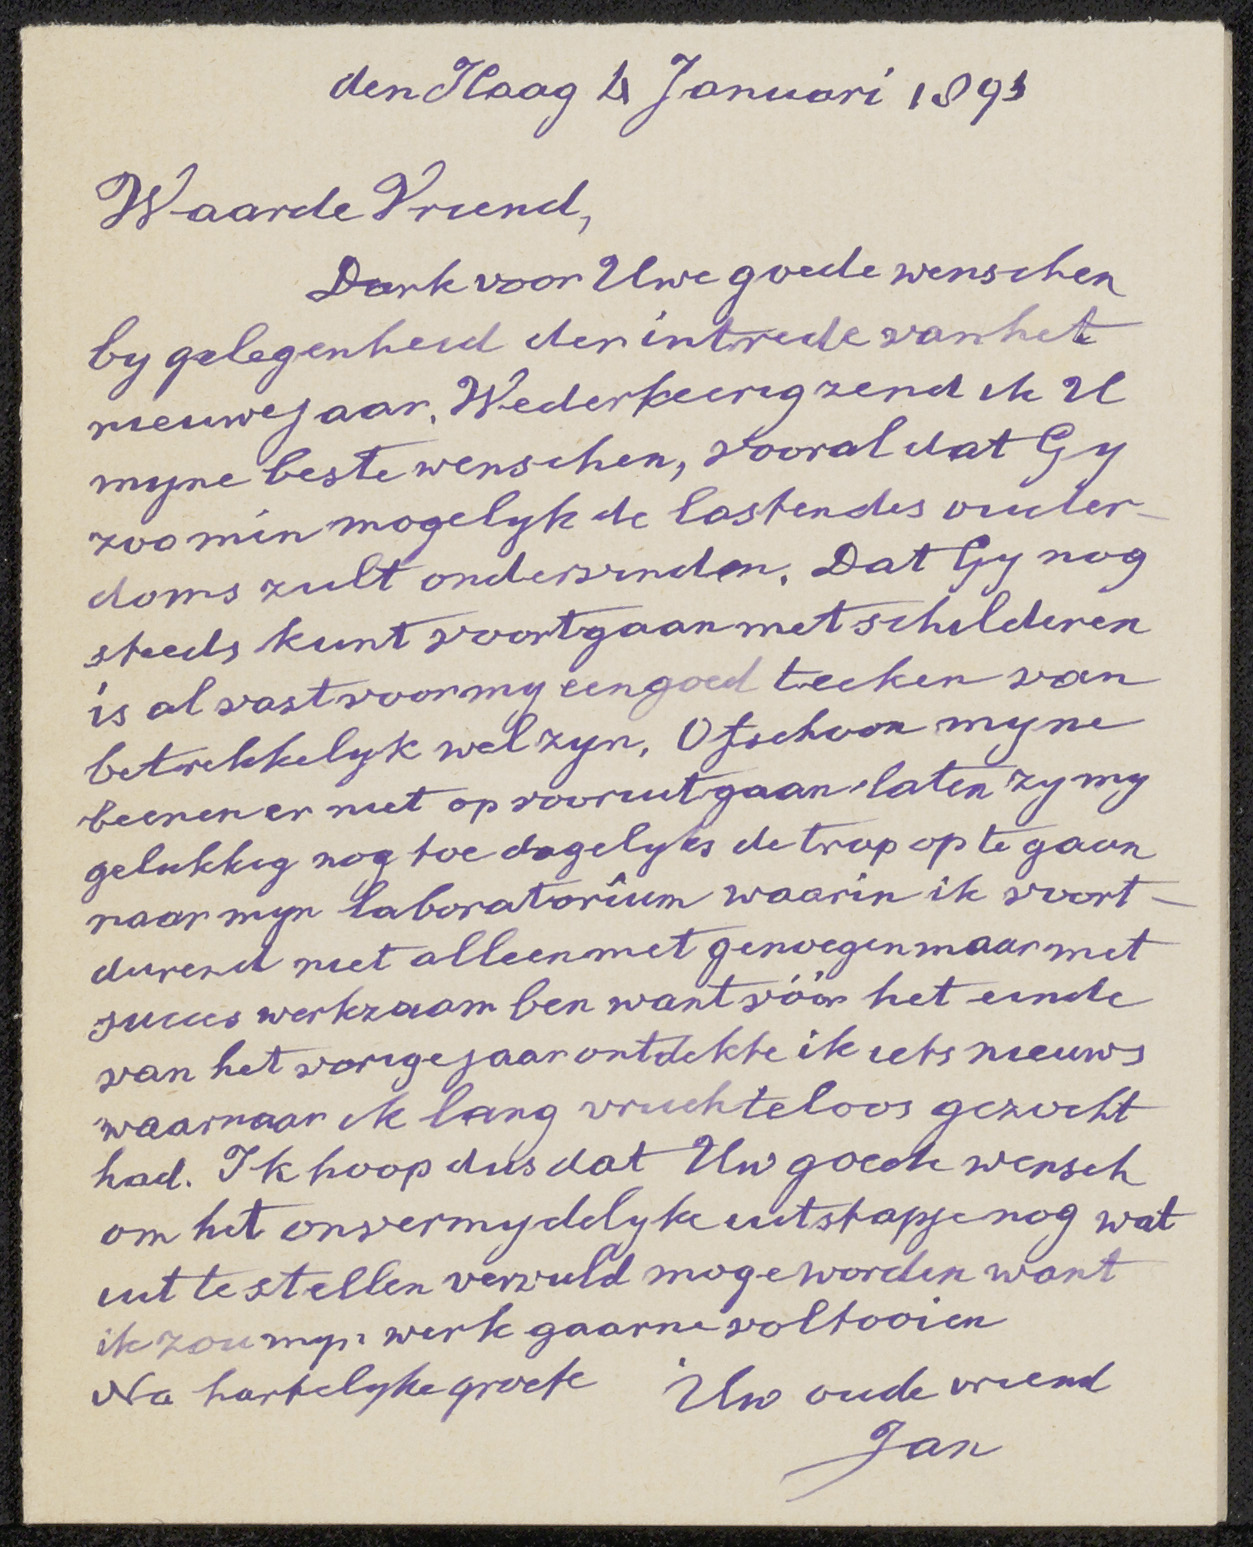 den Haag 4 Januari 1893
Waarde Vriend,
Dank voor Uwe goede wenschen
by gelegenheid der intrede van het
nieuwejaar. Wederkeerig zend ik U
myne beste wenschen, vooral dat Gy
zoo min mogelyk de lasten des ouder-
doms zult ondervinden. Dat Gy nog
steeds kunt voortgaan met schilderen
is al vast voor my een goed teeken van
betrekkelyk wel zyn. Ofschoon myne
beenen er niet op vooruitgaan laten zy my
gelukkig nog toe dagelyks de trap op te gaan
naar myn laboratorium waarin ik voort-
durend niet alleen met genoegen maar met
succes werkzaam ben want vóór het einde
van het vorige jaar ontdekte ik iets nieuws
waarnaar ik lang vruchteloos gezocht
had. Ik hoop dus dat Uw goede wensch
om het onvermydelyke uitstapje nog wat
uit te stellen vervuld moge worden want
ik zou myn werk gaarne voltooien
Na hartelyke groete Uw oude vriend
Jan